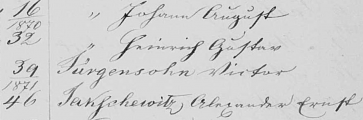 16 " Johann August
1870
32 " Heinrich Gustav
39 Jürgensohn Victor
1871
46 Jakschewitz, Alexander Ernst